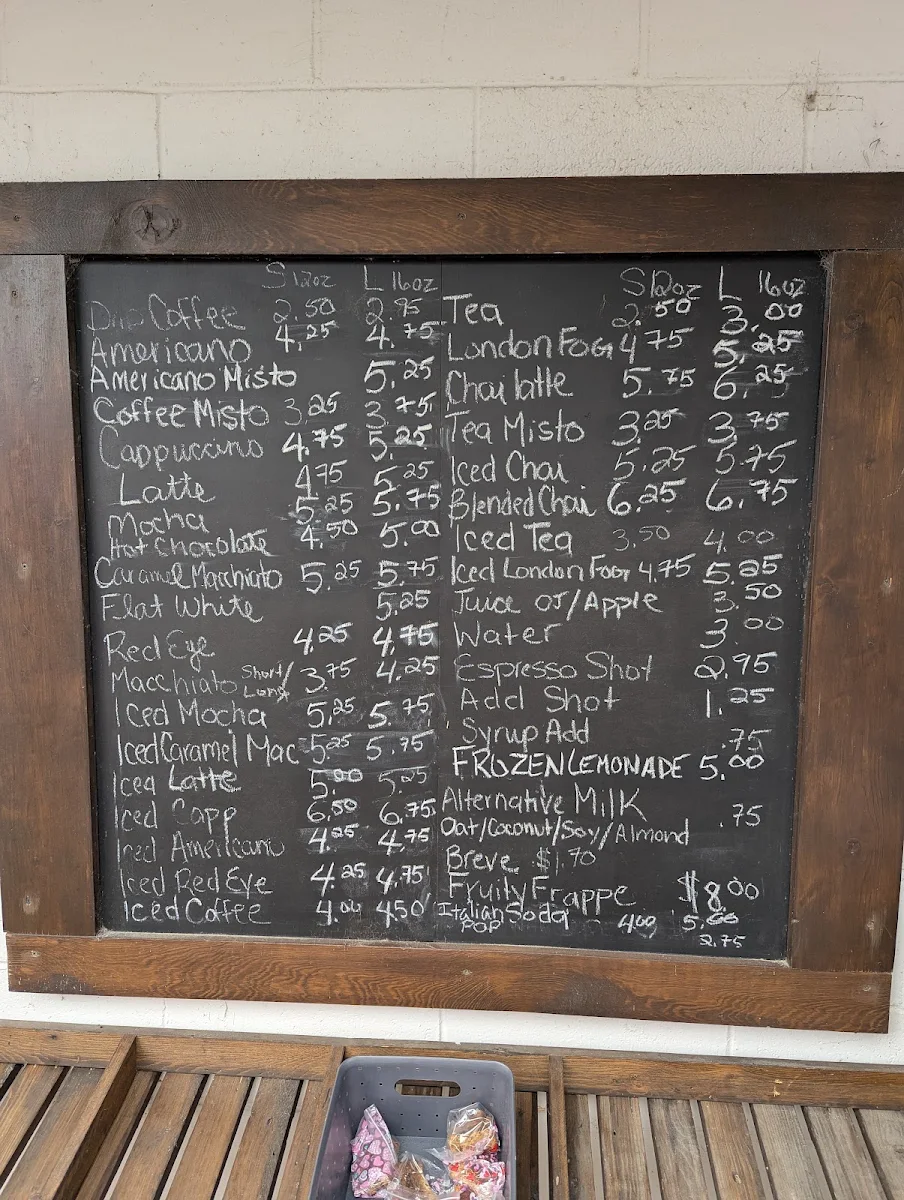 S 12oz L 16oz
Drip Coffee 2.50 2.95
Americano 4.25 4.75
Americano Misto 5.25
Coffee Misto 3.25 3.75
Cappuccino 4.75 5.25
Latte 4.75 5.25
Mocha 5.25 5.75
Hot Chocolate 4.50 5.00
Caramel Macchiato 5.25 5.75
Flat White 5.25
Red Eye 4.25 4.75
Macchiato Short/Long 3.75 4.25
Iced Mocha 5.25 5.75
Iced Caramel Mac 5.25 5.75
Iced Latte 5.00 5.25
Iced Capp 6.50 6.75
Iced Americano 4.25 4.75
Iced Red Eye 4.25 4.75
Iced Coffee 4.00 4.50
S 12oz L 16oz
Tea 2.50 3.00
London Fog 4.75 5.25
Chai latte 5.75 6.25
Tea Misto 3.25 3.75
Iced Chai 5.25 5.75
Blended Chai 6.25 6.75
Iced Tea 3.50 4.00
Iced London Fog 4.75 5.25
Juice OJ/Apple 3.50
Water 3.00
Espresso Shot 2.95
Add Shot 1.25
Syrup Add .75
FROZEN LEMONADE 5.00
Alternative Milk .75
Oat/Coconut/Soy/Almond
Breve $1.70
Fruity Frappe $8.00
Italian Soda 4.00 5.00
POP 2.75